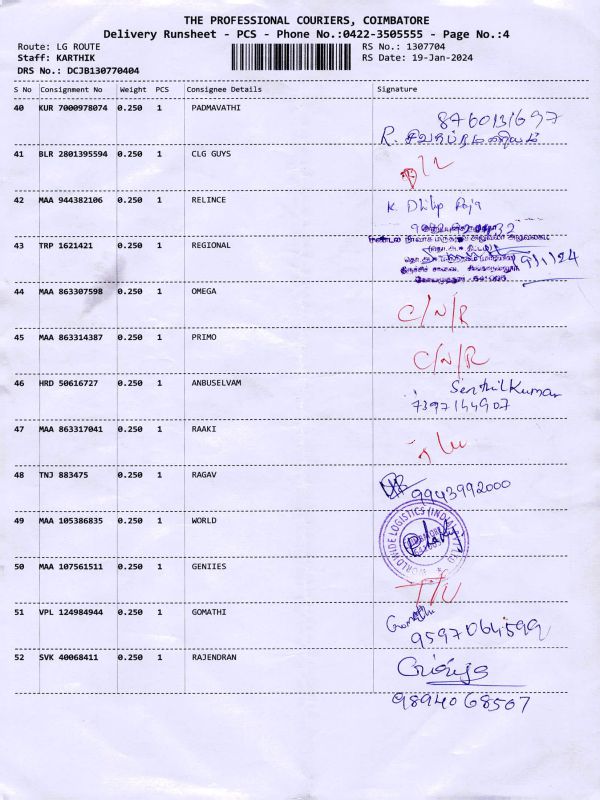 THE PROFESSIONAL COURIERS, COIMBATORE
Delivery Runsheet - PCS - Phone No.:0422-3505555 - Page No.:4
Route: LG ROUTE RS No.: 1307704
Staff: KARTHIK RS Date: 19-Jan-2024
DRS No.: DCJB130770404
S No Consignment No Weight PCS Consignee Details Signature
40 KUR 7000978074 0.250 1 PADMAVATHI 8760131697
R. சிவசுப்ரமணியம்
41 BLR 2801395594 0.250 1 CLG GUYS
42 MAA 944382106 0.250 1 RELINCE K. Dhilip Raja
43 TRP 1621421 0.250 1 REGIONAL
19/1/24
44 MAA 863307598 0.250 1 OMEGA C/N/R
45 MAA 863314387 0.250 1 PRIMO C/N/R
46 HRD 50616727 0.250 1 ANBUSELVAM Senthil Kumar
7397144907
47 MAA 863317041 0.250 1 RAAKI
48 TNJ 883475 0.250 1 RAGAV 9943992000
49 MAA 105386835 0.250 1 WORLD WORLDWIDE LOGISTICS (INDIA)
50 MAA 107561511 0.250 1 GENIIES
51 VPL 124984944 0.250 1 GOMATHI Gomathi
9597064599
52 SVK 40068411 0.250 1 RAJENDRAN
9894068507